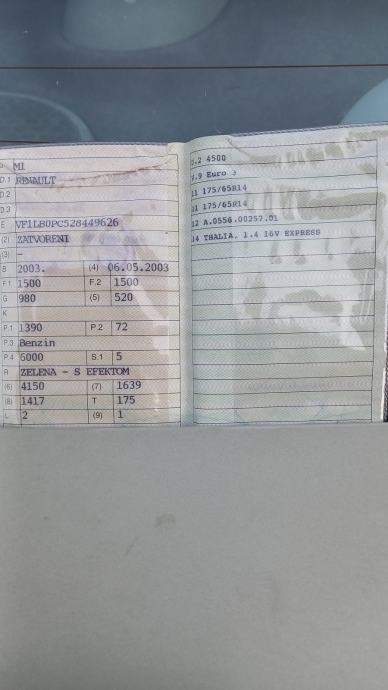 J MI
D.1 RENAULT
D.2
D.3
E VF1LB0PC528449626
(2) ZATVORENI
(3) -
B 2003. (4) 06.05.2003
F.1 1500 F.2 1500
G 980 (5) 520
K
P.1 1390 P.2 72
P.3 Benzin
P.4 6000 S.1 5
R ZELENA - S EFEKTOM
(6) 4150 (7) 1639
(8) 1417 T 175
L 2 (9) 1
U.2 4500
V.9 Euro 3
11 175/65R14
11 175/65R14
12 A.0556.00257.01
14 THALIA. 1.4 16V EXPRESS